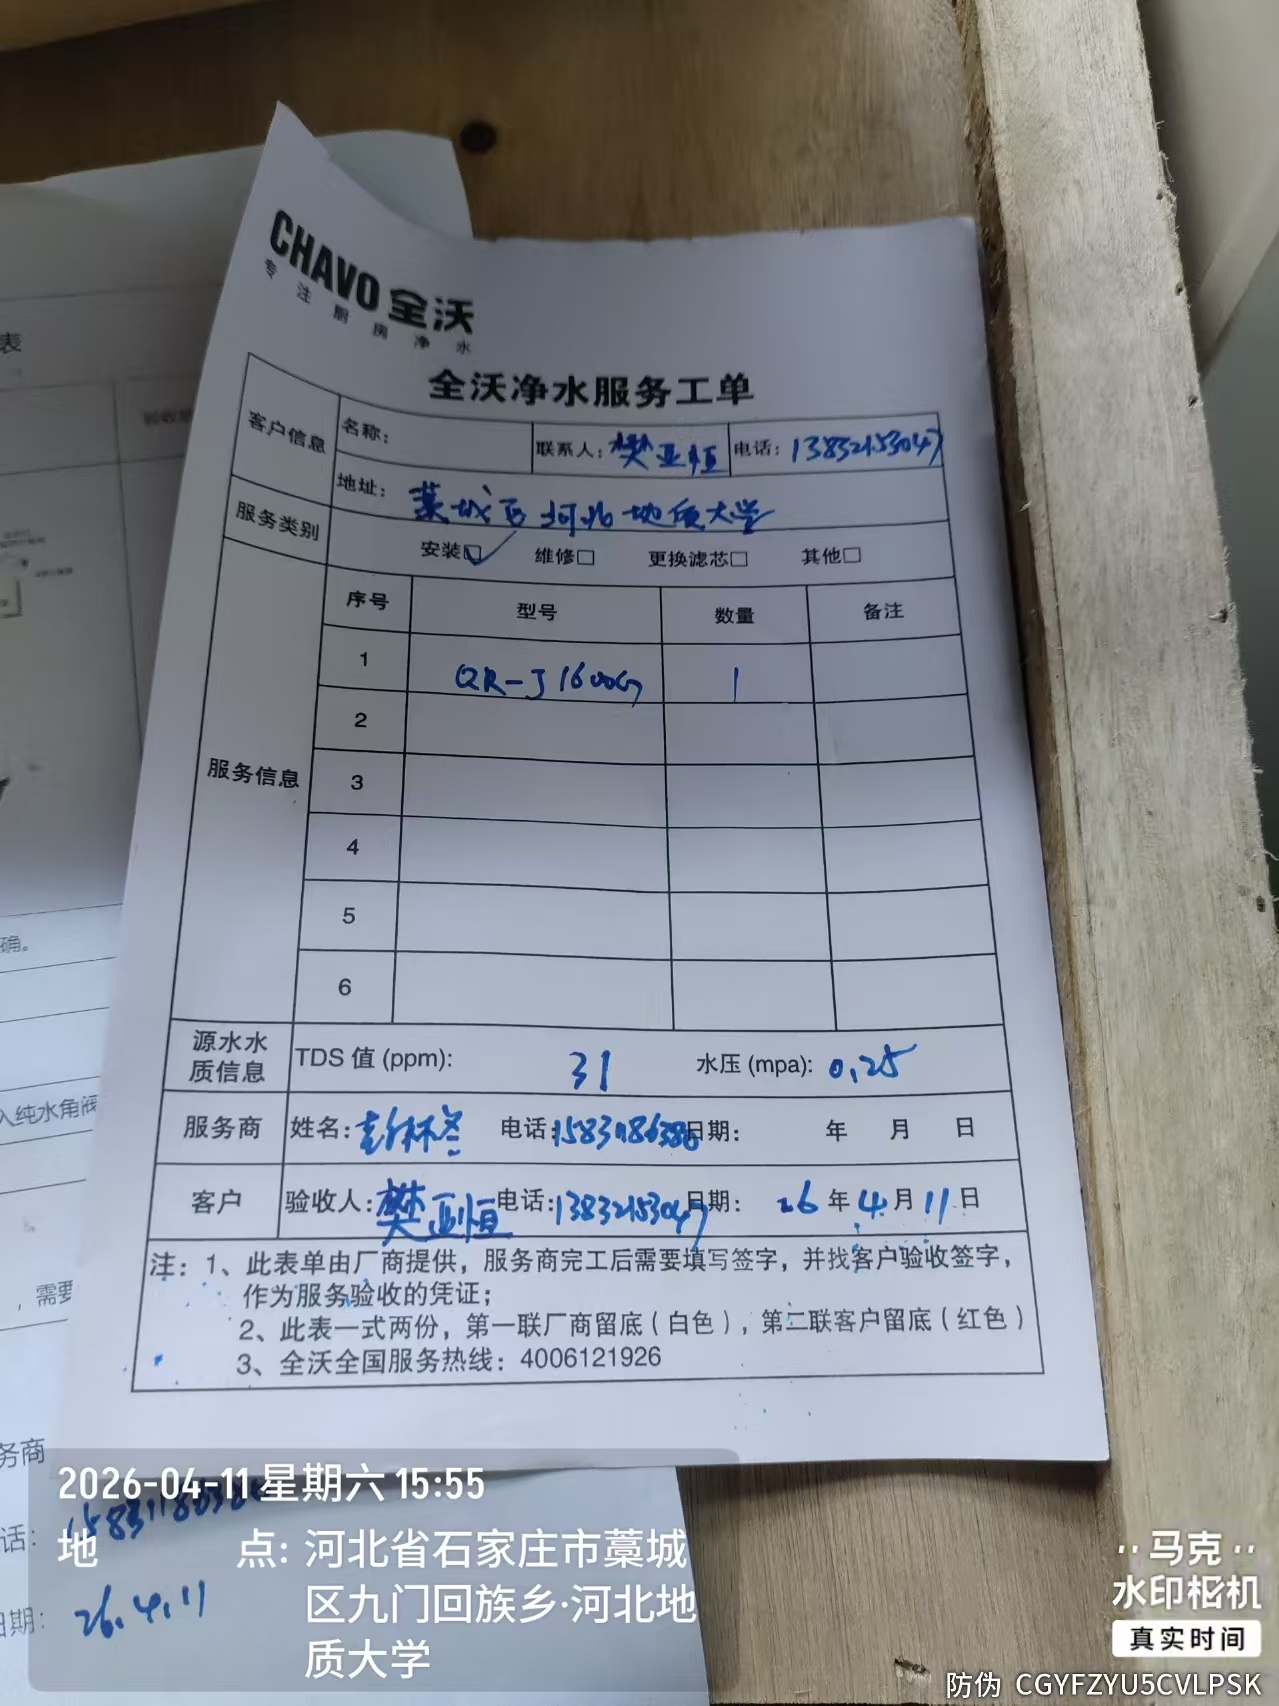 CHAVO 全沃
专注厨房净水
全沃净水服务工单
客户信息 名称: 联系人: 樊亚恒 电话: 13832153047
地址: 藁城区河北地质大学
服务类别 安装☑ 维修□ 更换滤芯□ 其他□
服务信息 序号 型号 数量 备注
1 QR-J1600G 1
2
3
4
5
6
源水水质信息 TDS 值 (ppm): 31 水压 (mpa): 0.25
服务商 姓名: 电话: 日期: 年 月 日
客户 验收人: 樊亚恒 电话: 13832153047 日期: 26 年 4 月 11 日
注: 1、此表单由厂商提供，服务商完工后需要填写签字，并找客户验收签字，
作为服务验收的凭证；
2、此表一式两份，第一联厂商留底（白色），第二联客户留底（红色）
3、全沃全国服务热线：4006121926
表
确。
入纯水角阀
，需要
务商
话:
日期: 26.4.11
2026-04-11 星期六 15:55
地 点: 河北省石家庄市藁城
区九门回族乡·河北地
质大学
马克
水印相机
真实时间
防伪 CGYFZYU5CVLPSK